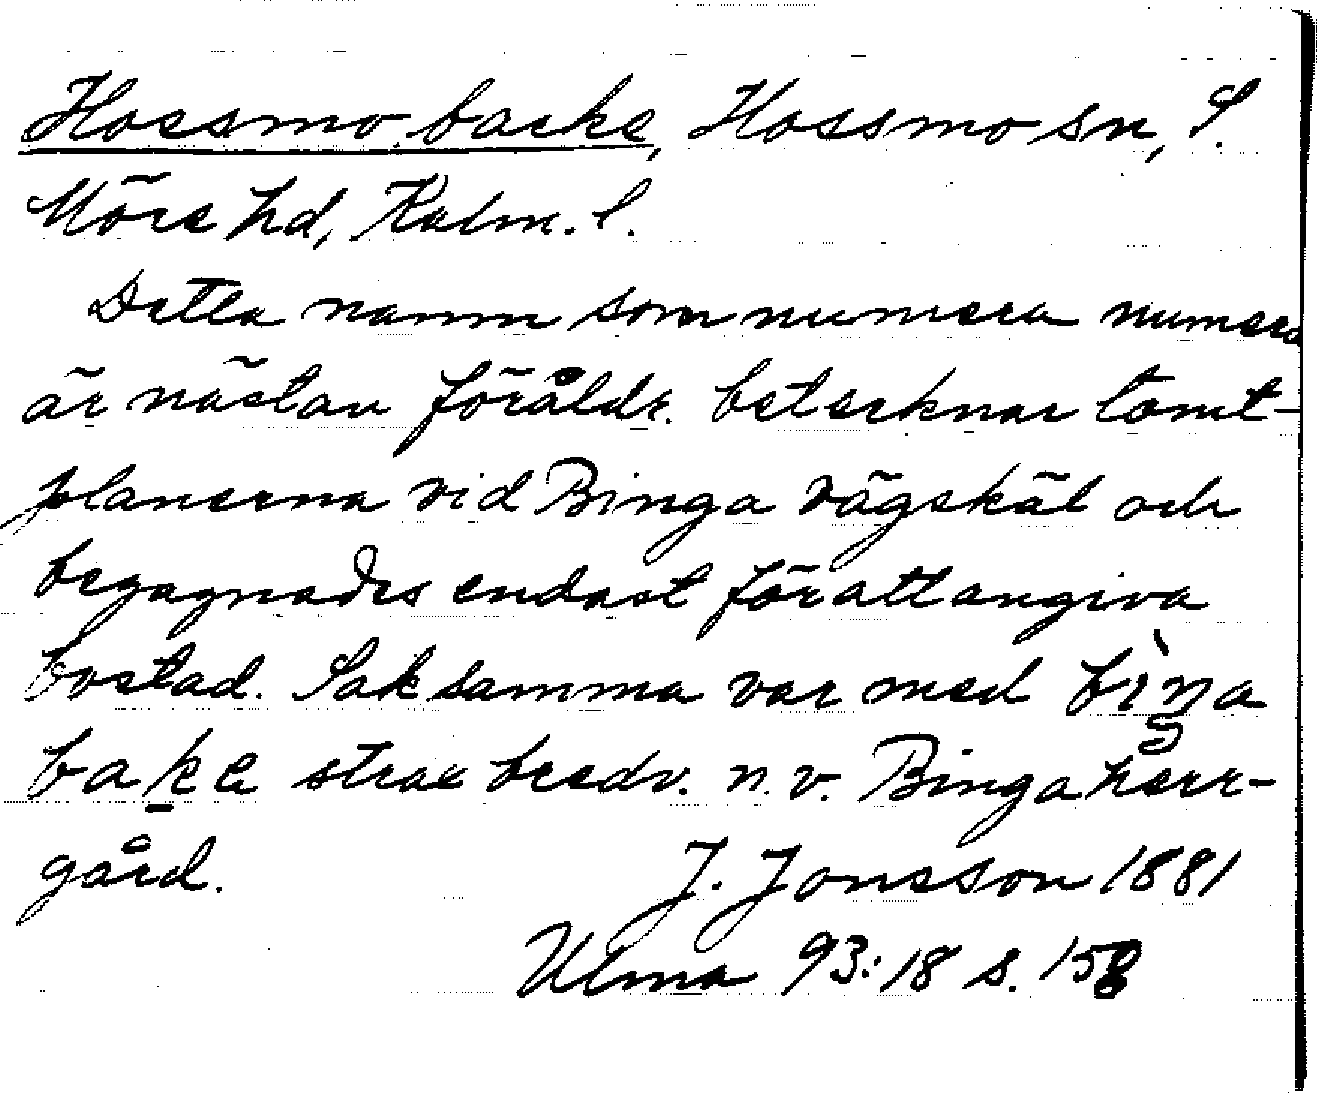 Hossmo backe, Hossmo sn, S.
Möre hd, Kalm. l.
Detta namn som numera numera
är nästan föråldr. betecknar tomt-
planerna vid Binga vägskäl och
begagnades endast för att angiva
bostad. Sak samma var med bìŋa
bake strax bredv. n.v. Binga herr-
gård.
J. Jonsson 1881
Ulma 93:18 s. 158